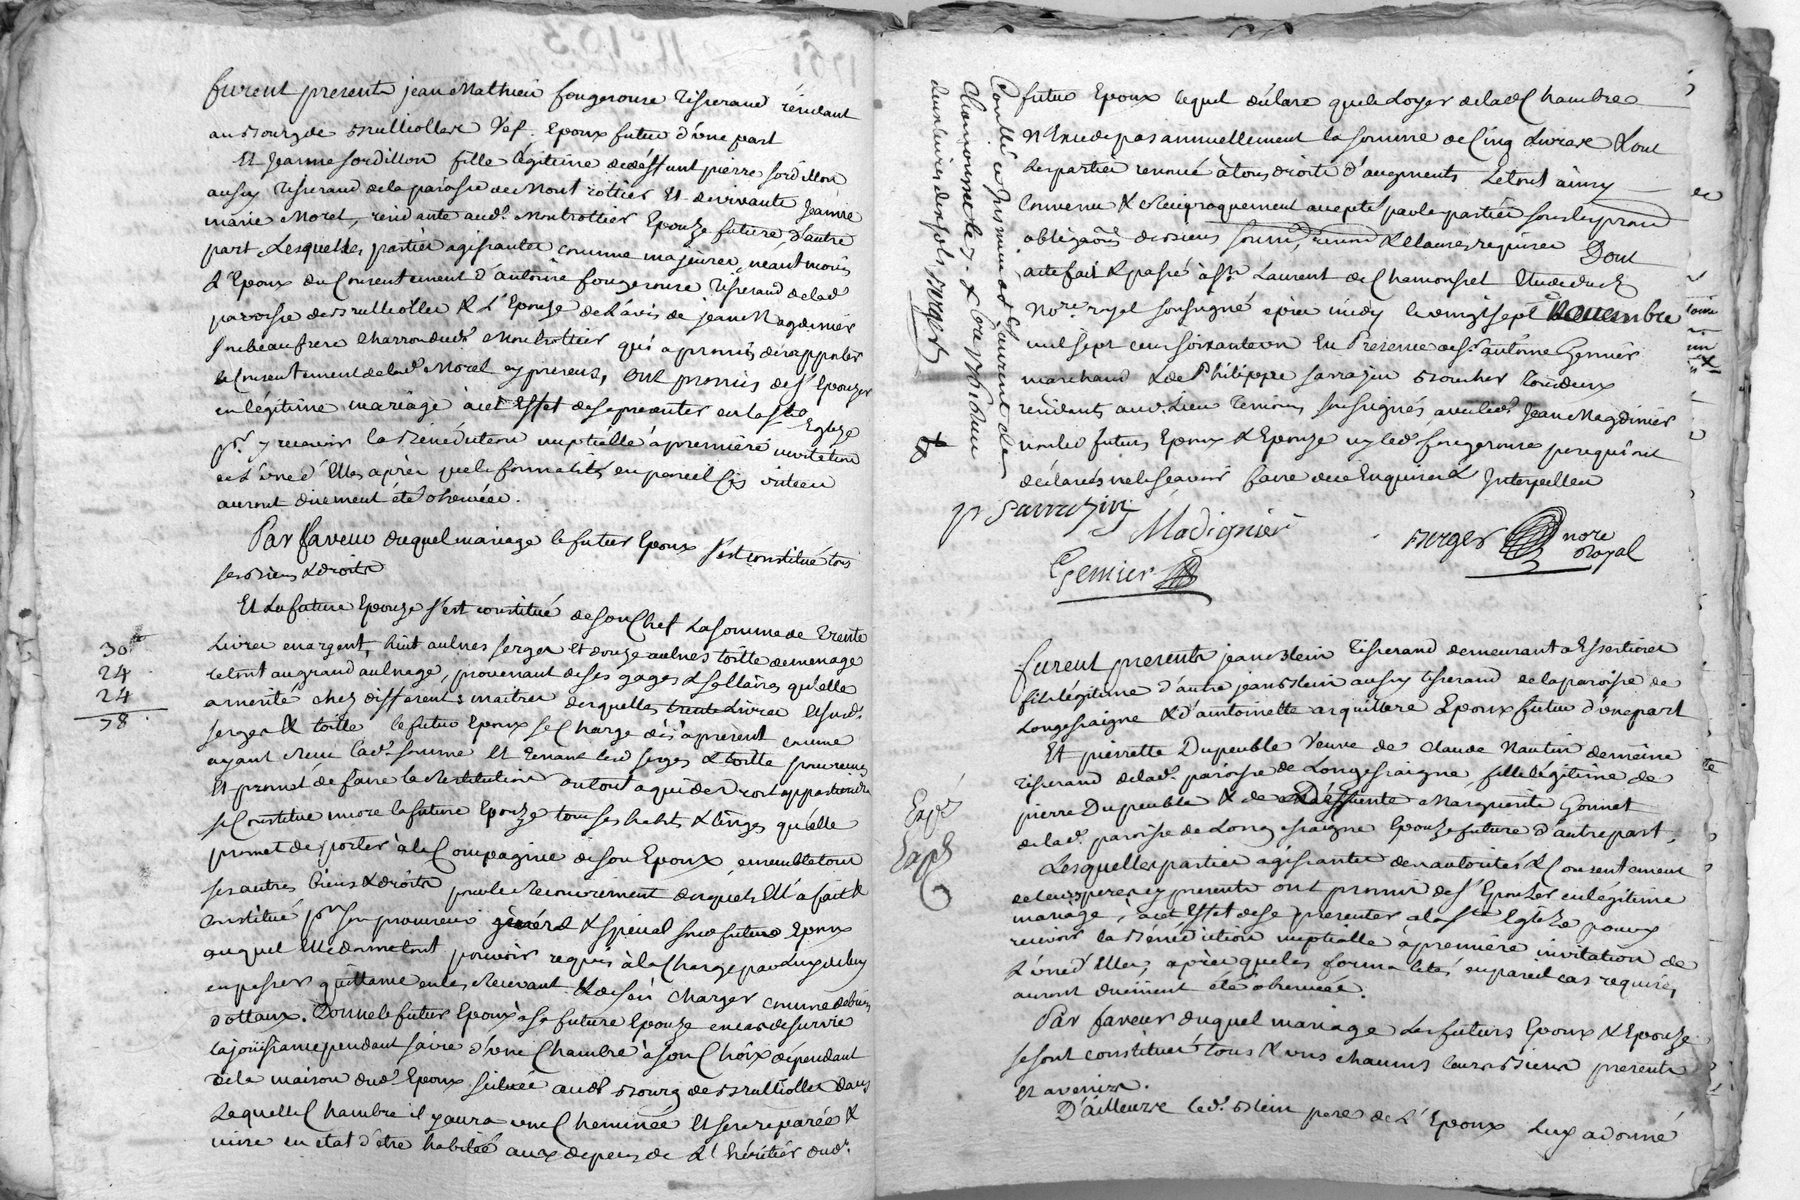 furent presents jean Mathieu fougerouse Tisserand résidant
au Bourg de Brulliolles Vef. Epoux futur d'une part
Et Jeanne sordillon fille légitime de déffunt pierre sordillon
aussy Tisserand de la paroisse de Montrottier Et de vivante Jeanne
marie Morel, residante aud. Montrottier Epouze future, d'autre
part, Lesquelles parties agissantes comme majeures, neantmoins
L'Epoux du Consentement d'antoine fougerouse Tisserand de lad.
paroisse de Brulliolles & L'Epouze de L'avis de jean Magdinier
son beau frere charron dud. Montrottier qui a promis de rapporter
le Consentement de lad. Morel ont promis de s'Epouzer
en légitime mariage à cet Effet de se presenter en la ste Eglize
pr. y recevoir la Bénédiction nuptialle à premiere invitation
de L'une d'Elles après que les formalités en pareil cas
auront duement été observées.
Par faveur duquel mariage le futur Epoux s'est constitué tous
ses Biens & droits
Et La future Epouze s'est constitué de son Chef La somme de Trente
Livres en argent, huit aulnes serges Et douze aulnes toille de menage
le tout au grand aulnage, provenant de ses gages & sallaires qu'elle
a merité chez differents maitres desquelles trente Livres Et susd.
serges & toille le futur Epoux se Charge dès à present comme
ayant Reçu lad. somme Et Tenant lesd serges & toille pour reçues
Et promet de faire la Restitution du tout à qui de droit appartiendra
se Constitue encore la future Epouze tous ses habits & linges qu'elle
promet de porter à la Compagnie de son Epoux, ensemble tous
ses autres biens & droits pour le Recouvrement desquels Ell'a fait &
Constitué pr. son procureur géneral & spécial sond. futur Epoux
auquel Elle donne tout pouvoir requis à la Charge par Luy
en passer quittance en les Recevant & de s'en charger comme de biens
dottaux. Donne le futur Epoux à sa future Epouze en cas de survie
la joüissance pendant sa vie d'une Chambre à son Choix dépendant
de la maison dud. Epoux située aud. Bourg de Brulliolles dans
Laquelle Chambre il y aura une Cheminée Et sera reparée &
mise en etat d'être habitée aux depens de L'héritier dud.
30
24
24
78
futur Epoux lequel déclare que le Loyer de lad. Chambre
N'Excede pas annuellement la somme de Cinq Livres &
Les parties renoncé à tous droits d'augments Le tout ainsy
Convenu & réciproquement accepté par les parties sous les prom
obligaons de Biens soumis, renons & Clauses requises Dont
acte fait & passé à St. Laurent de Chamousset Etude du
Nore. royal soussigné après midy le vingt sept Novembre
mil sept cent soixante un En Presence de sr. antoine Gemier
marchand & de Philippe sarrazin Boucher Tous deux
residants aud. Lieu Temoins soussignés avec led. Jean Magdinier
non les futurs Epoux & Epouze ny led. fougerouse pere qui ont
déclarés ne le sçavoir faire de ce Enquis & Interpellés
p Sarrazin
Madignier
Gemier
Burger
nore
Royal
Controllé et Insinué à St Laurent de
Chamousset
Burger
furent presents jean Blein Tisserand demeurant à Essertines
fils légitime d'autre jean Blein aussy tisserand de la paroisse de
Longessaigne & d'antoinette arquillere Epoux futur d'une part
Et pierrette Dupeuble Veuve de Claude Nautin de même
Tisserand de lad. paroisse de Longessaigne, fille légitime de
pierre Dupeuble & de Déffunte Marguerite Gonnet
de lad. paroisse de Longessaigne Epouze future d'autre part,
Lesquelles parties agissantes des autorités & Consentement
de leurs peres cy presents ont promis de s'Epouzer en légitime
mariage, à cet Effet de se presenter à la ste Eglize pour y
recevoir la Bénédiction nuptialle à premiere invitation de
L'une d'Elles, après que les formalités en pareil cas requises,
auront duëment été observées.
Par faveur duquel mariage Les futurs Epoux & Epouze
se sont constitués tous & uns chacuns leurs Biens presents
Et avenirs.
D'ailleurs led. Blein pere de L'Epoux Luy a donné
Expé
Expé